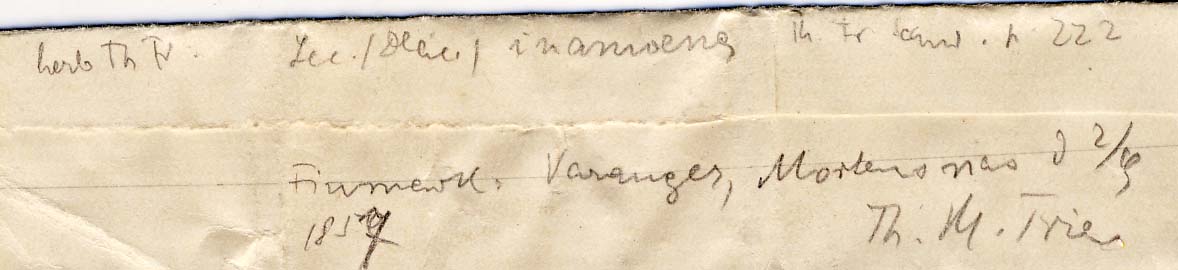 herb Th Fr. Lec. / Blic. / inamoena Th Fr Scand. p 222
Finmark. Varanger, Mortensnæs d 2/9
1857 Th. M. Fries